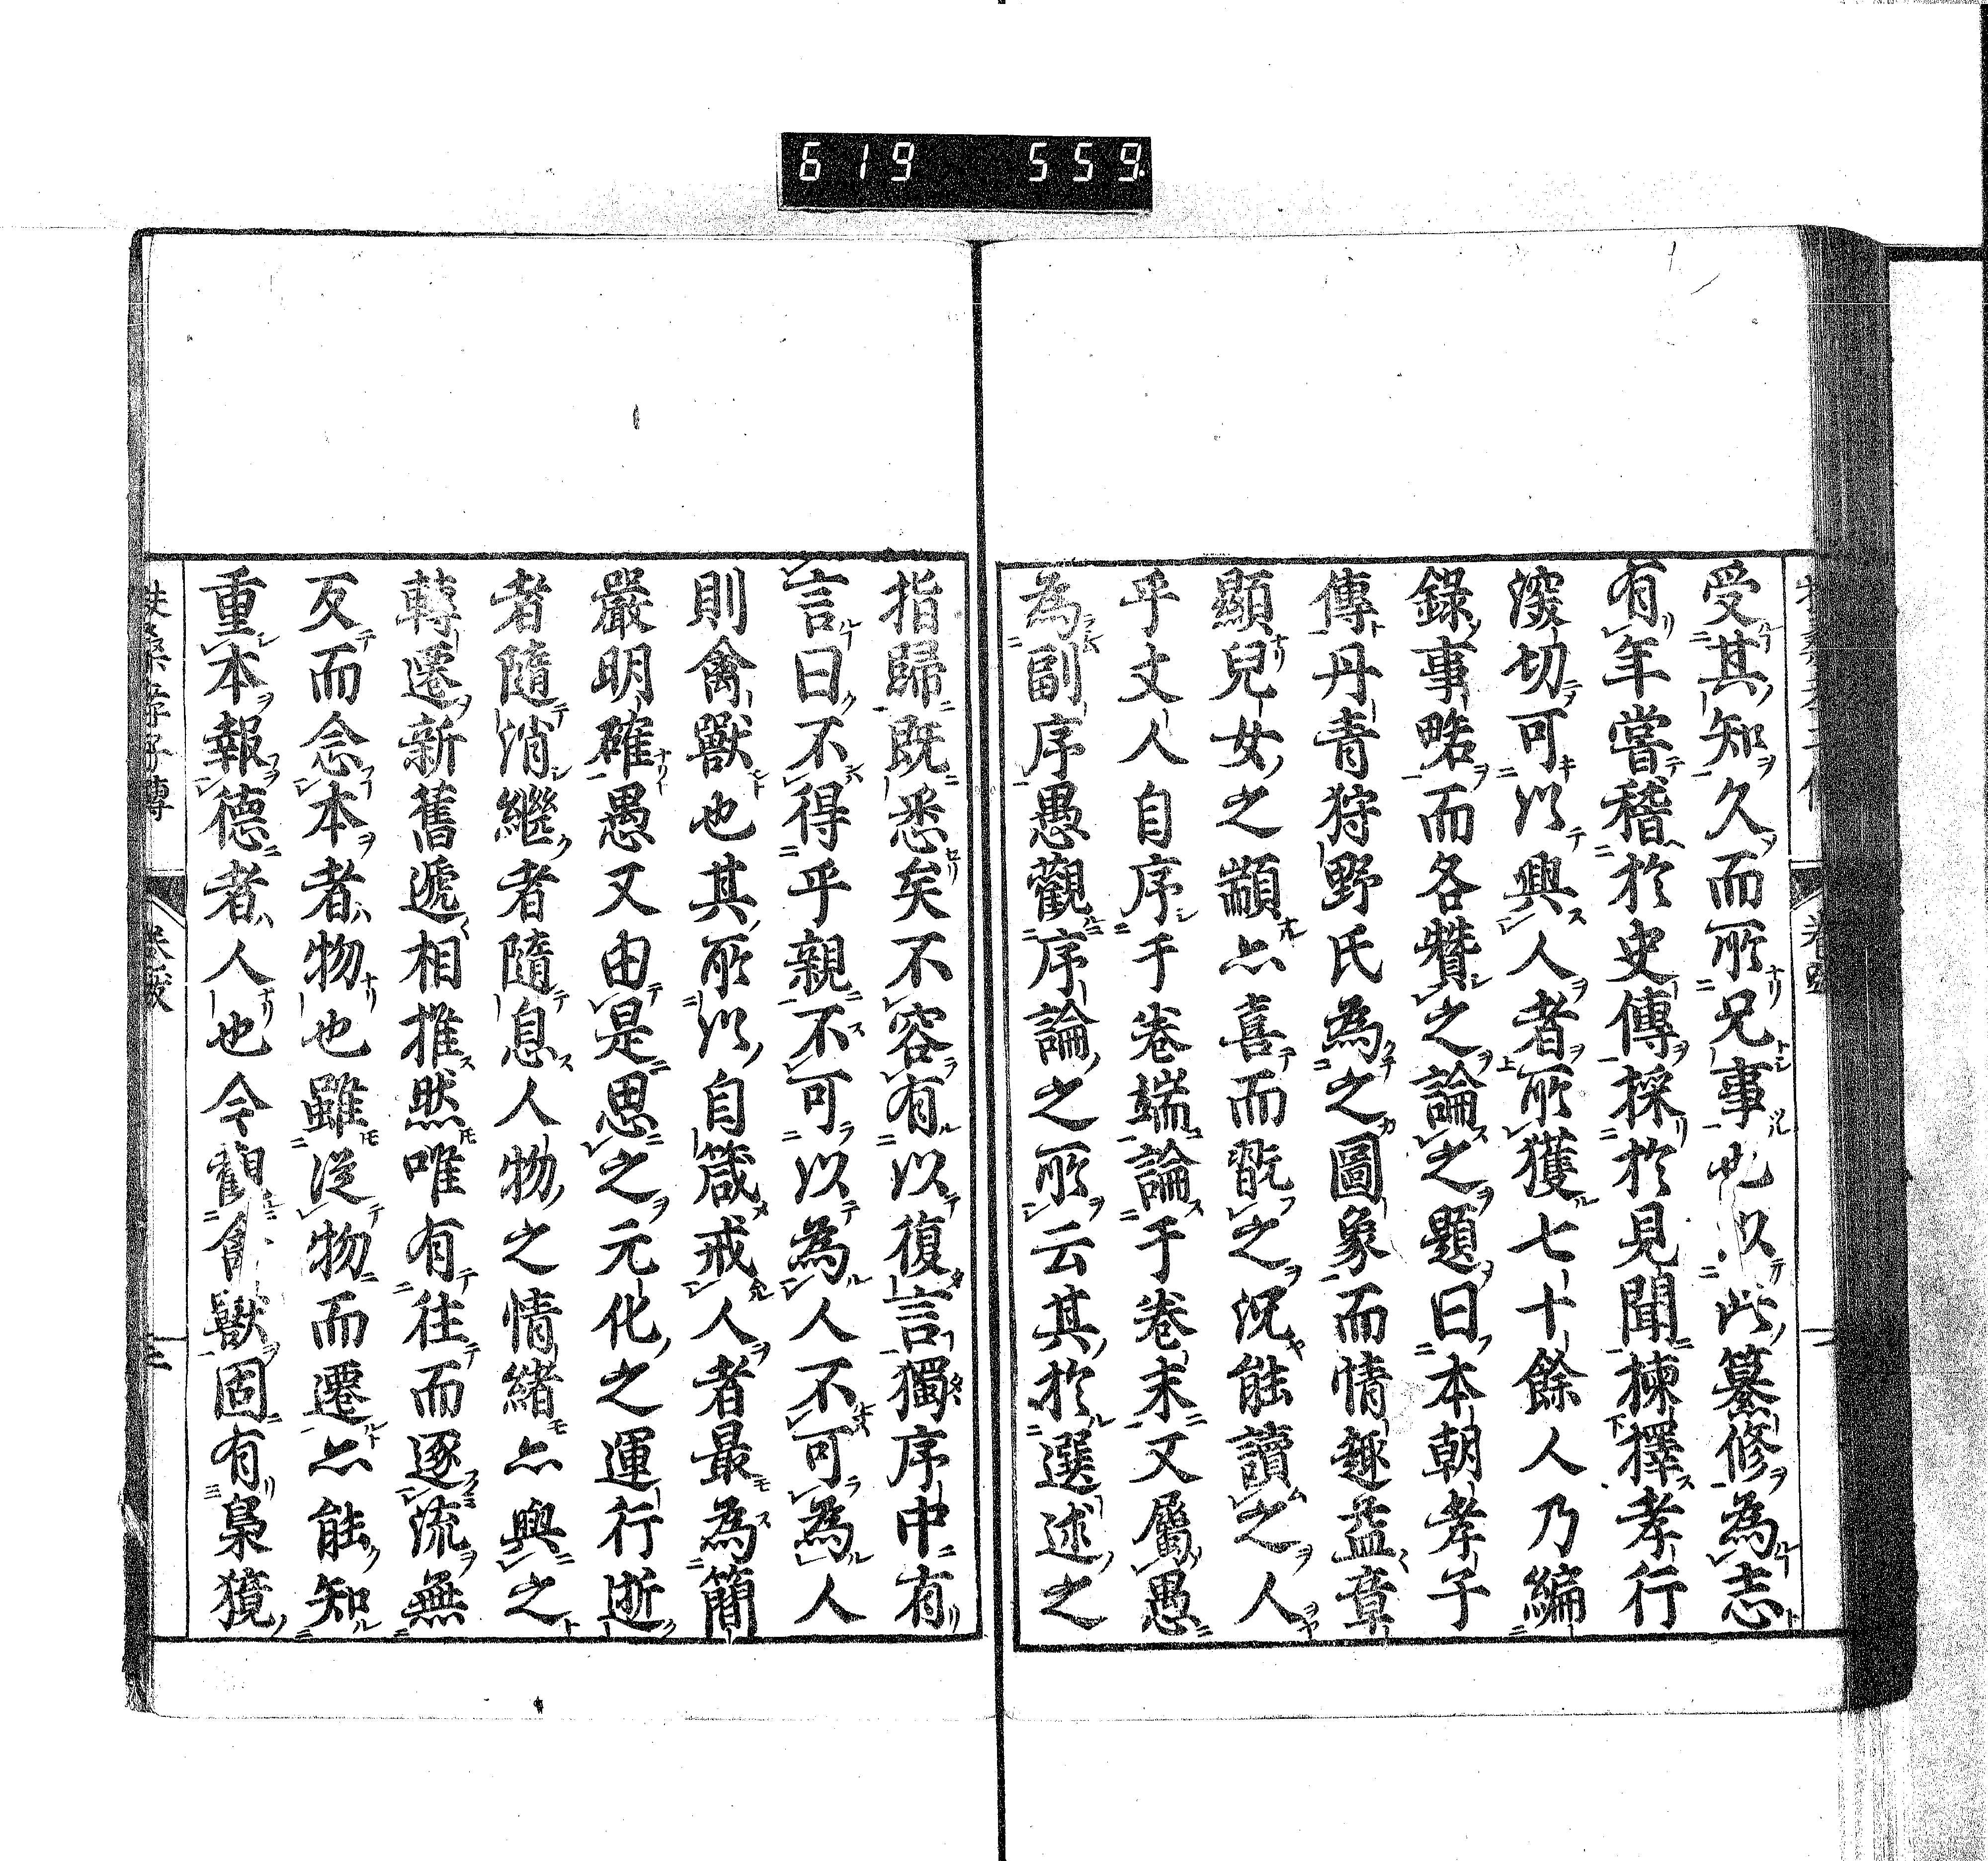 619 559
受其知久而所兄事也以此纂修為志
有年嘗稽於史傳採於見聞揀擇孝行
深切可以興人者所獲七十餘人乃編
錄事略而各贊之論之題曰本朝孝子
傳丹青狩野氏為之圖象而情趣益章
顯兒女之顓亦喜而翫之況能讀之人
乎丈人自序于卷端論于卷末又屬愚
為副序愚觀序論之所云其於選述之
指歸既悉矣不容有以復言獨序中有
言曰不得乎親不可以為人不可為人
則禽獸也其所以自箴戒人者最為簡
嚴明確愚又由是思之元化之運行逝
者隨消繼者隨息人物之情緒亦與之
轉遷新舊遞相推然唯有往而逐流無
反而念本者物也雖從物而遷亦能知
重本報德者人也今觀禽獸固有梟獍
扶桑孝子傳 卷跋 三